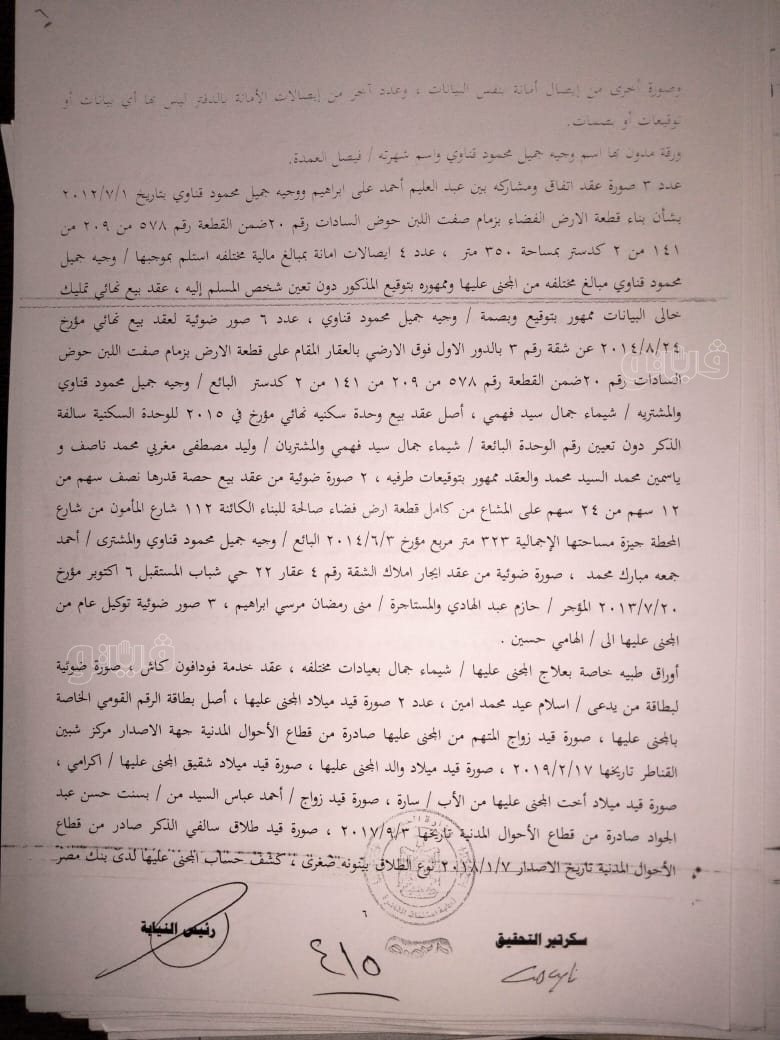 ٦
وصورة أخرى من إيصال أمانة بنفس البيانات ، وعدد آخر من إيصالات الأمانة بالدفتر ليس بها أي بيانات أو
توقيعات أو بصمات.
ورقة مدون بها اسم وجيه جميل محمود قناوي واسم شهرته / فيصل العمدة.
عدد ٣ صورة عقد اتفاق ومشاركه بين عبد العليم أحمد على ابراهيم ووجيه جميل محمود قناوي بتاريخ ٢٠١٢/٧/١
بشأن بناء قطعة الارض الفضاء بزمام صفت اللبن حوض السادات رقم ٢٠ضمن القطعة رقم ٥٧٨ من ٢٠٩ من
١٤١ من ٢ كدستر بمساحة ٣٥٠ متر ، عدد ٤ ايصالات امانة بمبالغ مالية مختلفه استلم بموجبها / وجيه جميل
محمود قناوي مبالغ مختلفه من المجنى عليها وممهوره بتوقيع المذكور دون تعين شخص المسلم إليه ، عقد بيع نهائي تمليك
خالى البيانات ممهور بتوقيع وبصمة / وجيه جميل محمود قناوي ، عدد ٦ صور ضوئية لعقد بيع نهائي مؤرخ
٢٠١٤/٨/٢٤ عن شقة رقم ٣ بالدور الاول فوق الارضي بالعقار المقام على قطعة الارض بزمام صفت اللبن حوض
السادات رقم ٢٠ضمن القطعة رقم ٥٧٨ من ٢٠٩ من ١٤١ من ٢ كدستر البائع / وجيه جميل محمود قناوي
والمشتريه / شيماء جمال سيد فهمي ، أصل عقد بيع وحدة سكنيه نهائي مؤرخ في ٢٠١٥ للوحدة السكنية سالفة
الذكر دون تعيين رقم الوحدة البائعة / شيماء جمال سيد فهمي والمشتريان / وليد مصطفى مغربي محمد ناصف و
ياسمين محمد السيد محمد والعقد ممهور بتوقيعات طرفيه ، ٢ صورة ضوئية من عقد بيع حصة قدرها نصف سهم من
١٢ سهم من ٢٤ سهم على المشاع من كامل قطعة ارض فضاء صالحة للبناء الكائنة ١١٢ شارع المأمون من شارع
المحطة جيزة مساحتها الإجمالية ٣٢٣ متر مربع مؤرخ ٢٠١٤/٦/٣ البائع / وجيه جميل محمود قناوي والمشترى / أحمد
جمعه مبارك محمد ، صورة ضوئية من عقد ايجار املاك الشقة رقم ٤ عقار ٢٢ حي شباب المستقبل ٦ اكتوبر مؤرخ
٢٠١٣/٧/٢٠ المؤجر / حازم عبد الهادي والمستاجرة / منى رمضان مرسي ابراهيم ، ٣ صور ضوئية توكيل عام من
المجنى عليها الى / الهامي حسين .
أوراق طبيه خاصة بعلاج المجنى عليها / شيماء جمال بعيادات مختلفه ، عقد خدمة فودافون كاش ، صورة ضوئية
لبطاقة من يدعى / اسلام عيد محمد امين ، عدد ٢ صورة قيد ميلاد المجنى عليها ، أصل بطاقة الرقم القومي الخاصة
بالمجنى عليها ، صورة قيد زواج المتهم من المجنى عليها صادرة من قطاع الأحوال المدنية جهة الاصدار مركز شبين
القناطر تاريخها ٢٠١٩/٢/١٧ ، صورة قيد ميلاد والد المجنى عليها ، صورة قيد ميلاد شقيق المجنى عليها / اكرامي ،
صورة قيد ميلاد أخت المجنى عليها من الأب / سارة ، صورة قيد زواج / أحمد عباس السيد من / بسنت حسن عبد
الجواد صادرة من قطاع الأحوال المدنية تاريخها ٢٠١٧/٩/٣ ، صورة قيد طلاق سالفي الذكر صادر من قطاع
الأحوال المدنية تاريخ الاصدار ٢٠١٨/١/٧ نوع الطلاق بينونه صغرى ، كشف حساب المجنى عليها لدى بنك مصر
٦
سكرتير التحقيق
رئيس النيابة
٤١٥
فيتو
فيتو